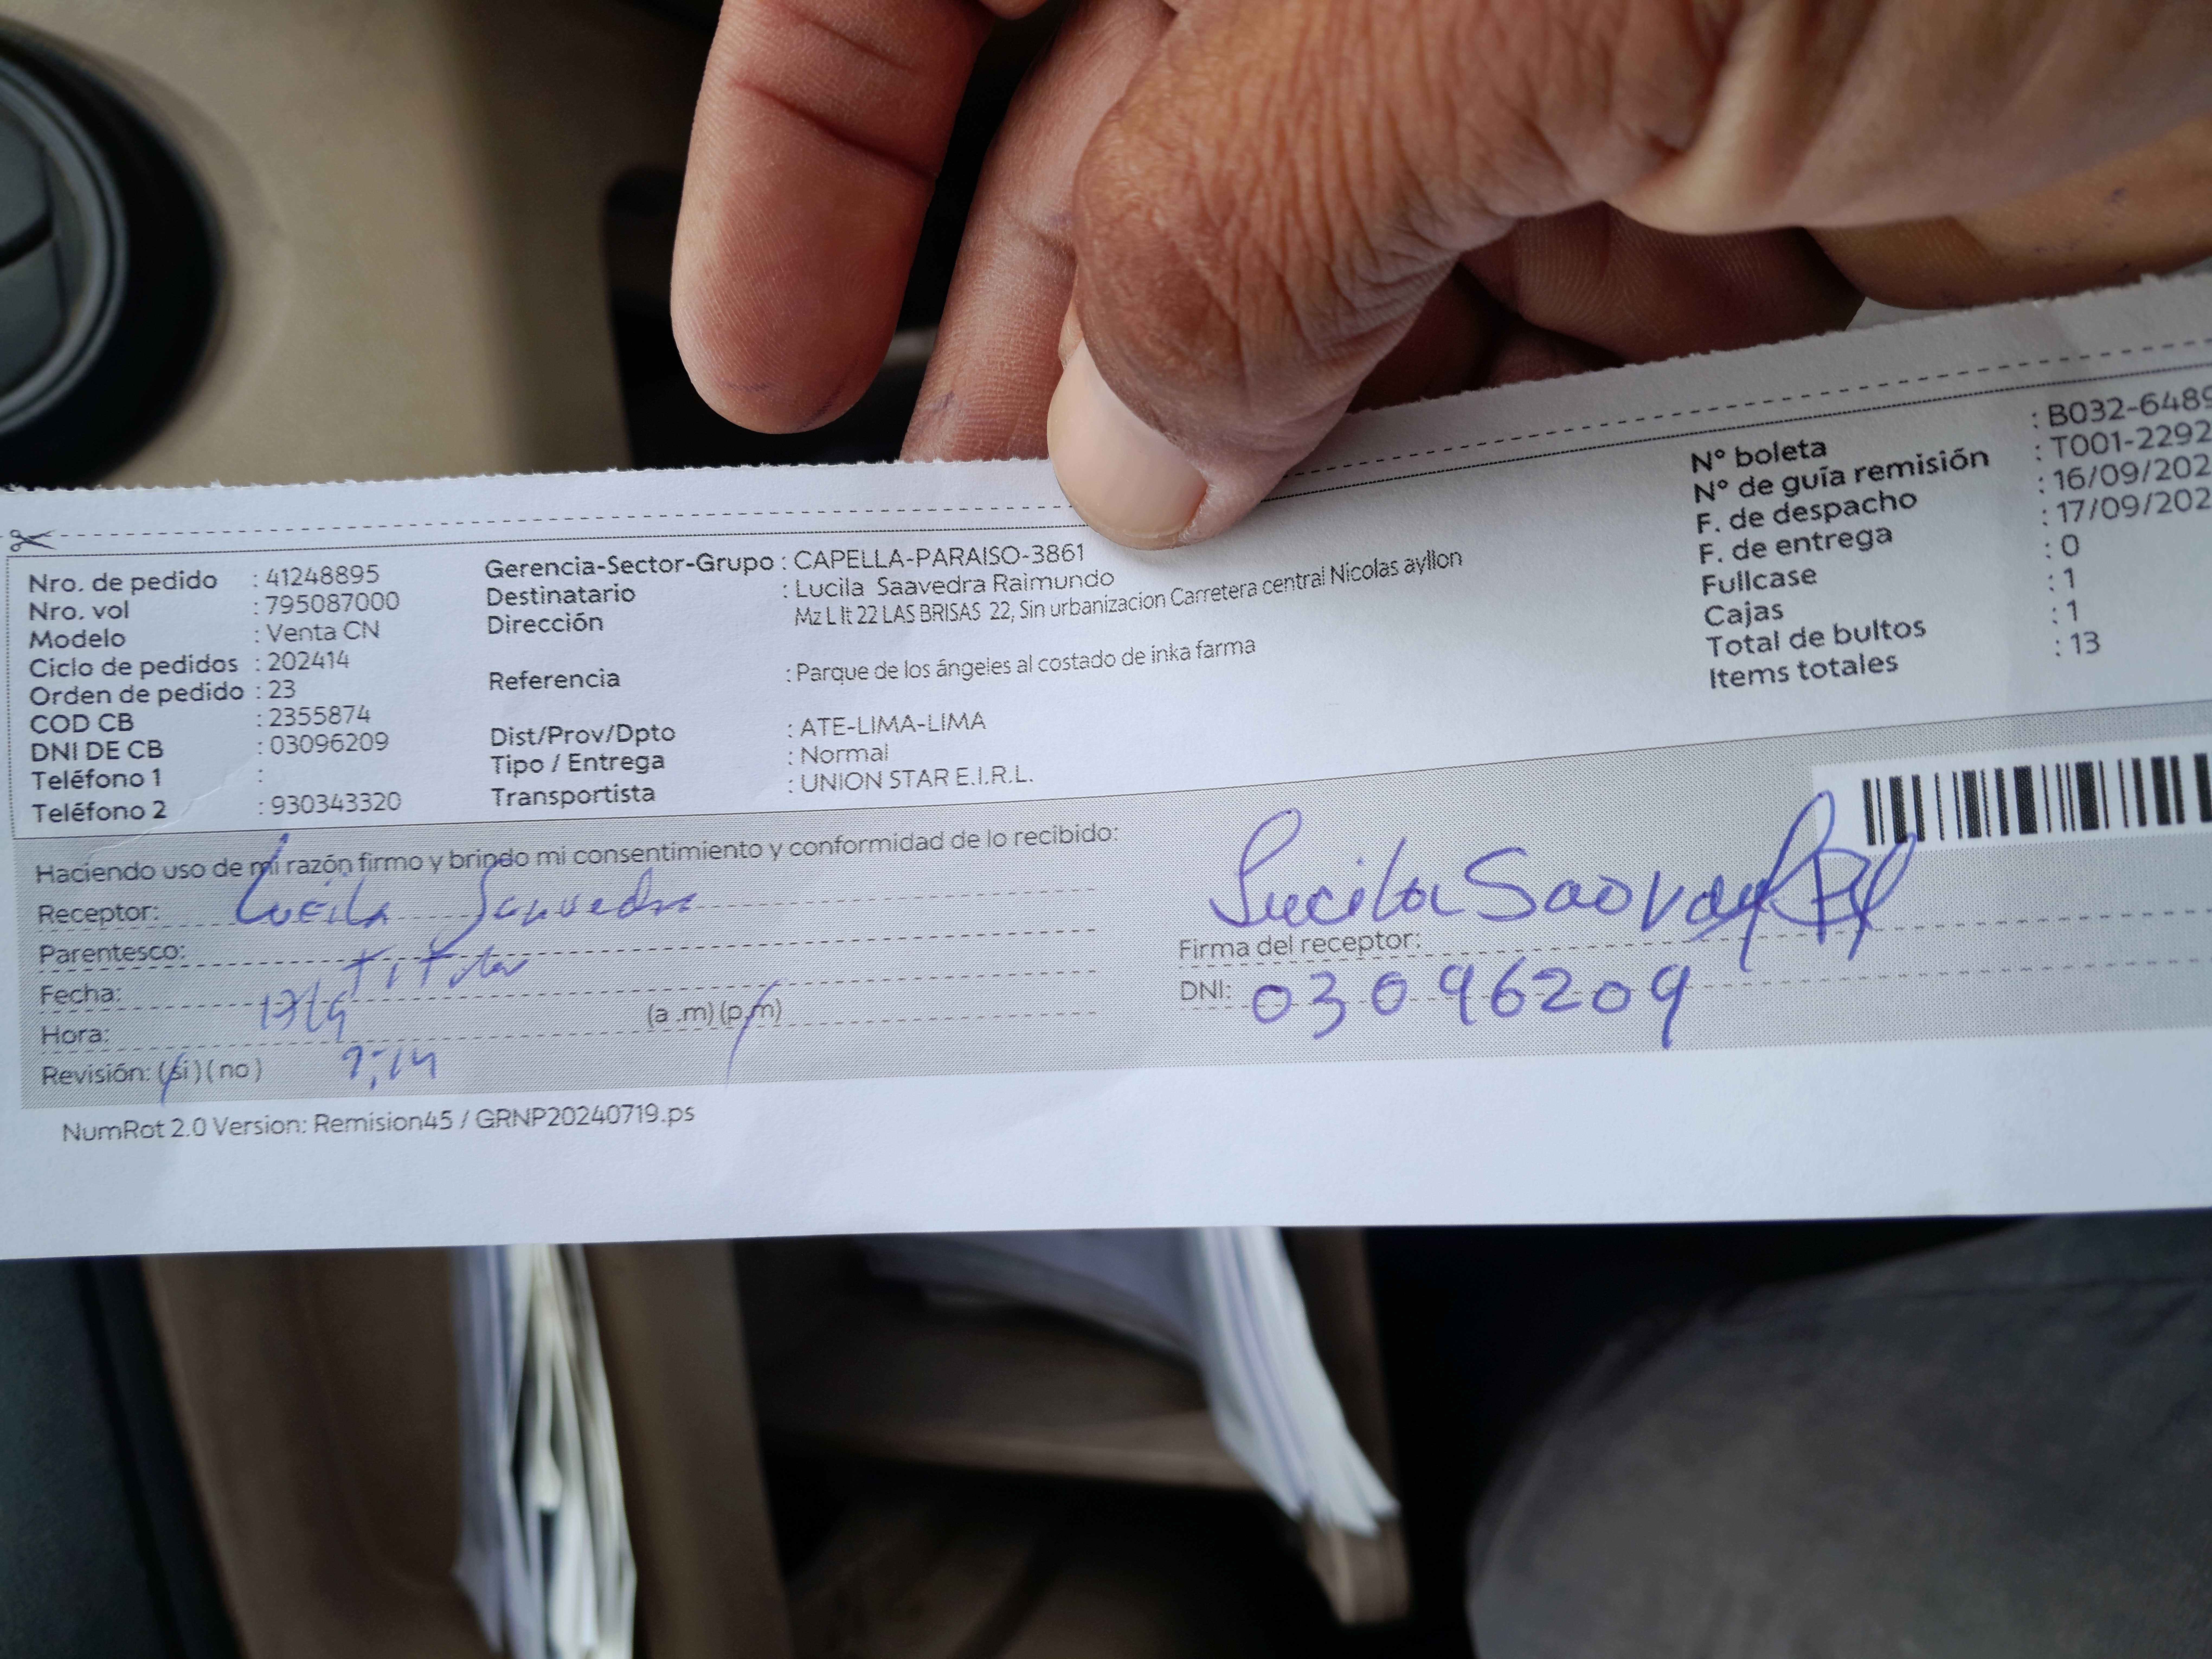 Nro. de pedido : 41248895
Nro. vol : 795087000
Modelo : Venta CN
Ciclo de pedidos : 202414
Orden de pedido : 23
COD CB : 2355874
DNI DE CB : 03096209
Teléfono 1 :
Teléfono 2 : 930343320
Gerencia-Sector-Grupo : CAPELLA-PARAISO-3861
Destinatario : Lucila Saavedra Raimundo
Dirección Mz L lt 22 LAS BRISAS 22, Sin urbanizacion Carretera central Nicolas ayllon
Referencia : Parque de los ángeles al costado de inka farma
Dist/Prov/Dpto : ATE-LIMA-LIMA
Tipo / Entrega : Normal
Transportista : UNION STAR E.I.R.L.
N° boleta : B032-6489
N° de guía remisión : T001-2292
F. de despacho : 16/09/202
F. de entrega : 17/09/202
Fullcase : 0
Cajas : 1
Total de bultos : 1
Items totales : 13
Haciendo uso de mi razón firmo y brindo mi consentimiento y conformidad de lo recibido:
Receptor: Lucila Saavedra
Parentesco: Titular
Fecha: 17/9
Hora: (a .m) (p.m)
Revisión: (si) (no)
Lucila Saavedra
Firma del receptor:
DNI: 03096209
NumRot 2.0 Version: Remision45 / GRNP20240719.ps